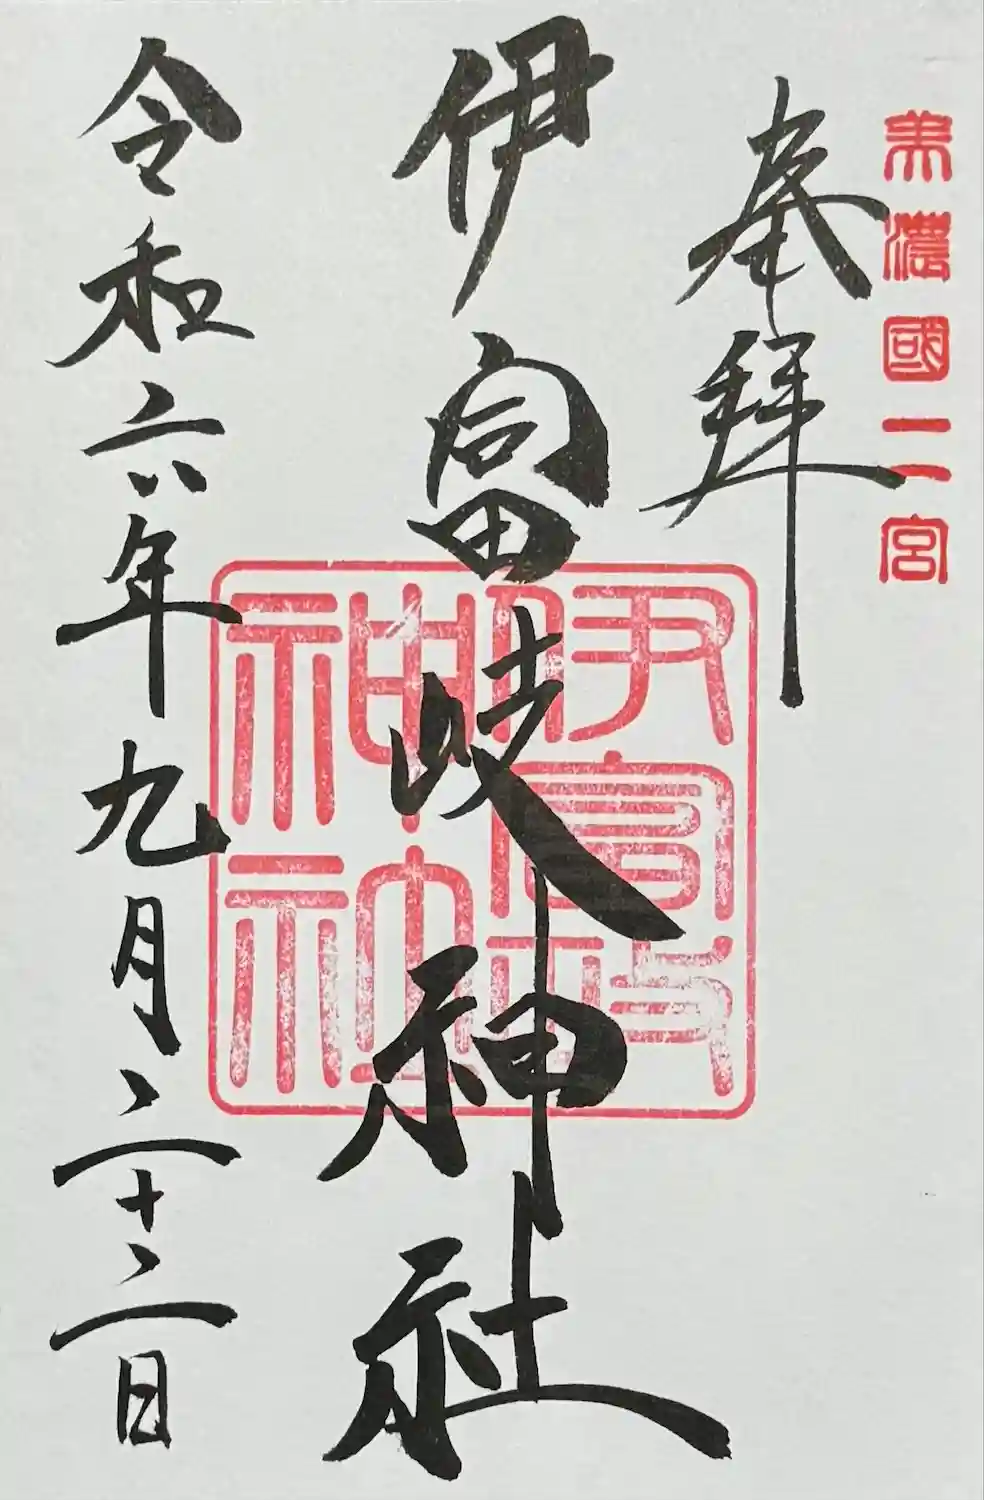 美濃國二宮
奉拝
伊富岐神社
伊富岐
神社
令和六年九月二十二日